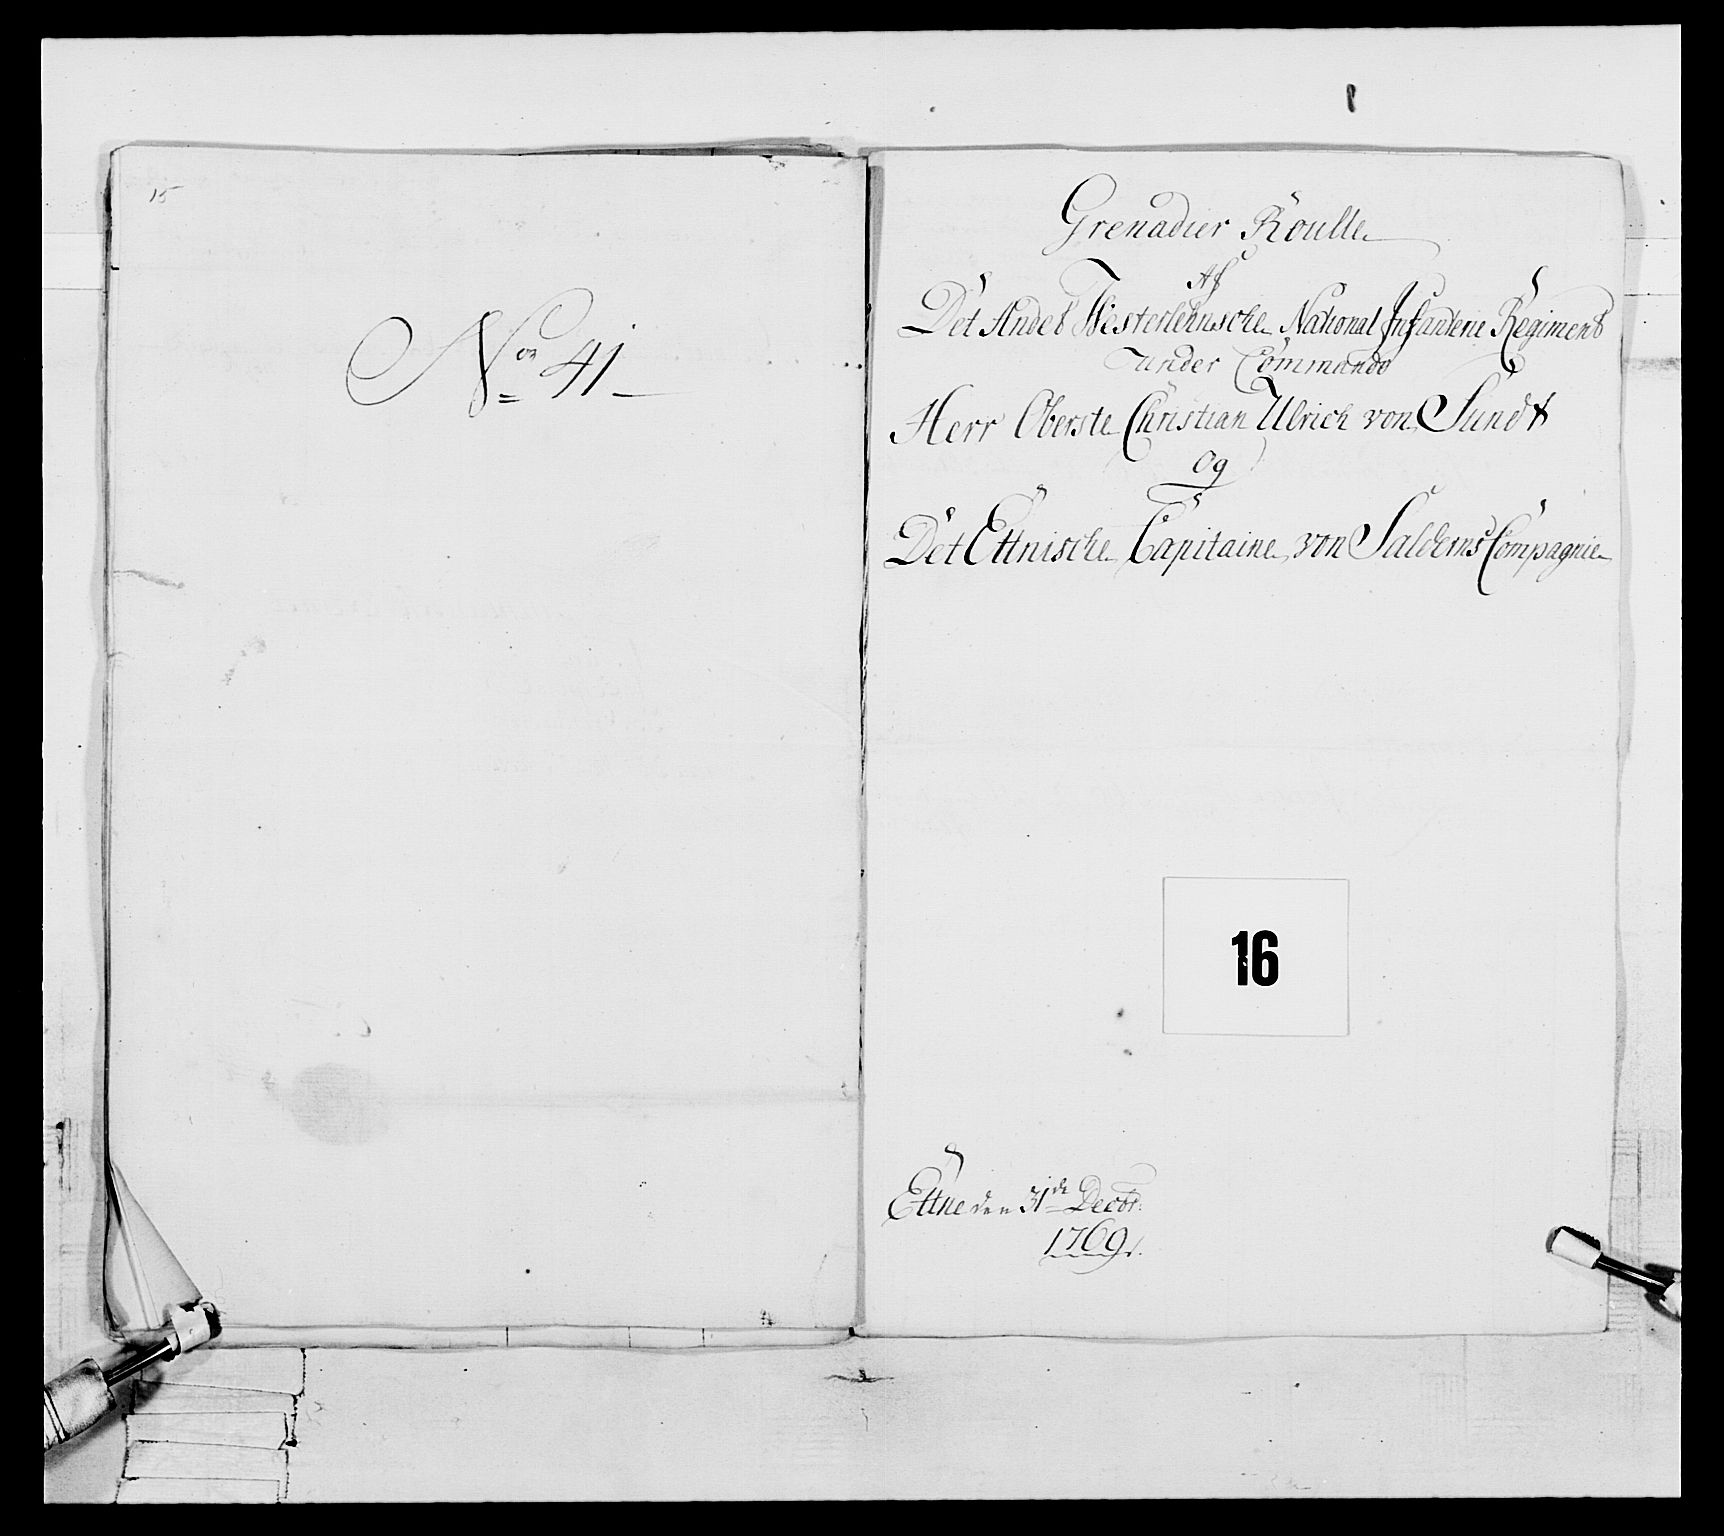 15
No 41
Grenadier Roulle
Af
Det Andet Westerlehnsche National Infanterie Regiment
under Commando
Herr Oberste Christian Ulrich von Sundt
Og
Det Ettnische Capitaine von Salderns Compagnie
16
Ettne den 31de Decbr:
1769.